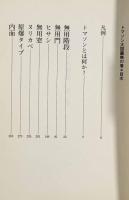 トマソン大図鑑無の巻＊目次
凡例
トマソンとは何か?
無用階段
無用門
ヒサシ
無用窓
ヌリカベ
原爆タイプ
内面